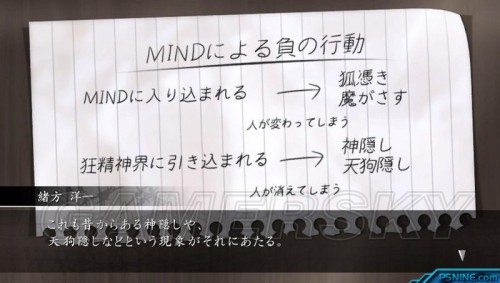 MINDによる負の行動
MINDに入り込まれる → 狐憑き
魔がさす
人が変わってしまう
狂精神界に引き込まれる → 神隠し
天狗隠し
人が消えてしまう
緒方 洋一
GAMERSKY
これも昔からある神隠しや、
天狗隠しなどという現象がそれにあたる。
PSNINE.com